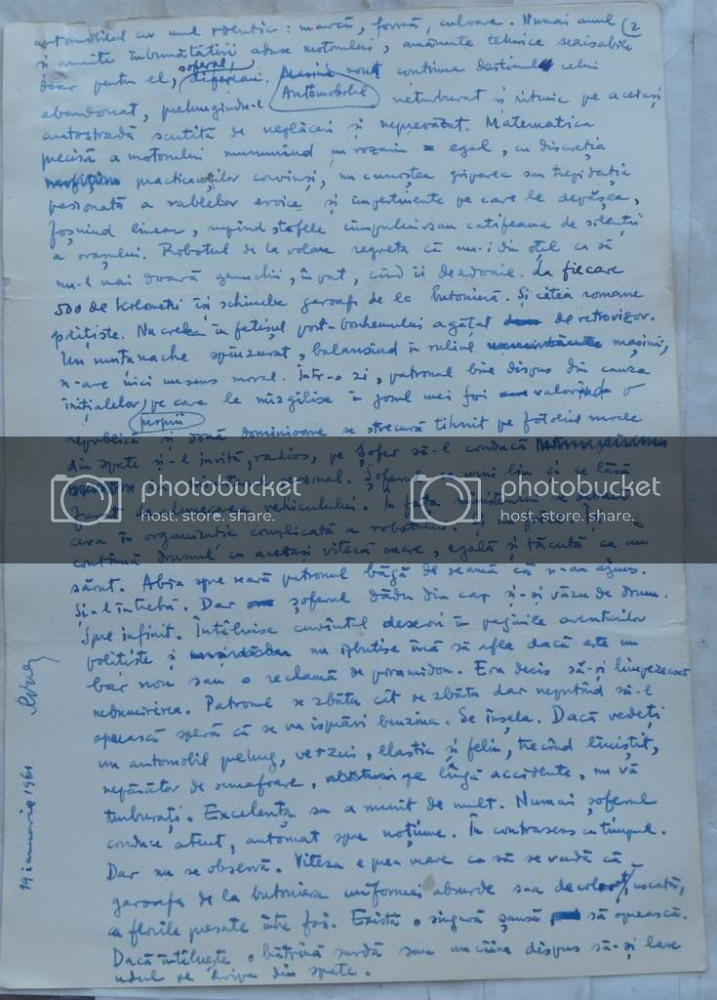 automobilul cu unul identic: marcă, formă, culoare. Numai anul (2
și anumite îmbunătățiri aduse motorului, amănunte tehnice sesizabile
doar pentru el, șoferul, difereau. nouă continua destinul celui
Automobilul
abandonat, prelungindu-l neturburat și ritmic pe aceeași
autostradă scutită de neplăceri și neprevăzut. Matematica
precisă a motorului murmurând un rozariu egal, cu discreția
practicanților convinși, nu cunoștea griparea sau trepidația
pasionată a rablelor eroice și impertinente pe care le depășea,
foșnind linear, rupînd stofele cîmpului sau catifeaua de siluetă
a orașului. Robotul de la volan regreta că nu-i din oțel ca să
nu-l mai doară genunchii, în pat, cînd îi dezdoaie. La fiecare
500 de kilometri își schimba garoafa de la butonieră. Și citea romane
polițiste. Nu credea în fetișul post-boxerului agățat de retrovizor.
Un spînzurat, balansînd în ruliul mașinii,
n-are nici un sens moral. Într-o zi, patronul bine dispus din cauza
inițialelor, pe care le mîzgălise în josul unei foi valorînd o
propriu
republică și două dominioane se strecură tihnit pe fotoliul moale
din spate și-l invită, radios, pe șofer să-l conducă
personal. Șoferul
furat de alunecarea vehiculului. În fața
ceva în organizația complicată a robotului. Și
continuă drumul cu aceeași viteză mare, egală și tăcută ca un
sărut. Abia spre seară patronul băgă de seamă că n-au ajuns.
Și-l întrebă. Dar șoferul dădu din cap și-și văzu de drum.
Spre infinit. Întîlnise cuvîntul deseori în paginile aventurilor
polițiste și nu izbutise încă să afle dacă este un
bar nou sau o reclamă de piramidon. Era decis să-și limpezească
nedumerirea. Patronul se zbătu cît se zbătu dar neputînd să-l
oprească speră că se va isprăvi benzina. Se înșela. Dacă vedeți
un automobil prelung, verzui, elastic și felin, trecînd liniștit,
nepăsător de semafoare, pe lîngă accidente, nu vă
turburați. Excelența sa a murit de mult. Numai șoferul
conduce atent, automat spre noțiune. În contrasens cu timpul.
Dar nu se observă. Viteza e prea mare ca să se vadă că
garoafa de la butoniera uniformei absurde s-a decolorat, uscată,
ca florile presate între foi. Există o singură șansă să oprească.
Dacă întîlnește o bătrînă surdă sau un cîine dispus să-și lase
udul pe aripa din spate.
19 ianuarie 1961
photobucket
host. store. share.
photobucket
host. store. share.